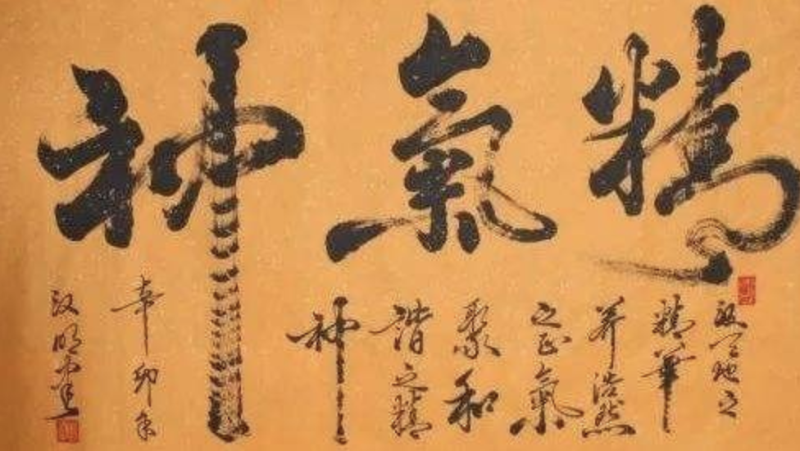 精氣神
取天地之
精華
养浩然
之正氣
聚和
諧之精
神
辛卯年
汉明